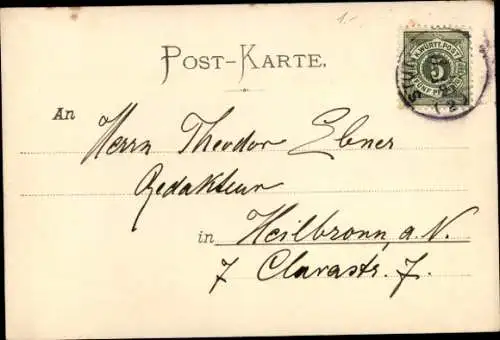 1.-
K. WÜRTT. POST
5
FÜNF PF
POST-KARTE.
An Herrn Theodor Ebner
Redakteur
in Heilbronn a. N.
7 Clarastr. 7.